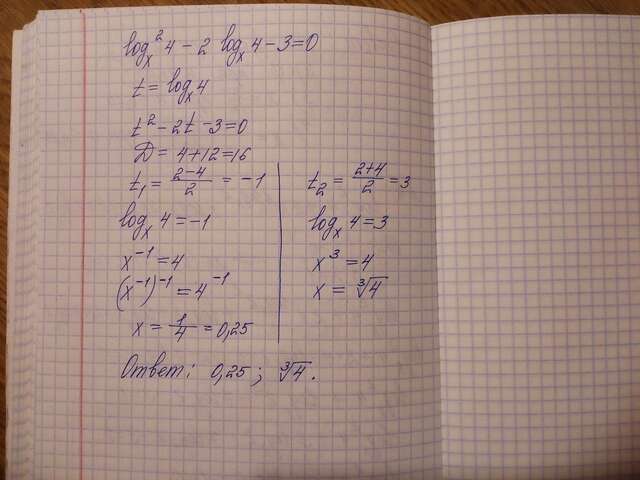 logₓ²4 − 2 logₓ4 − 3 = 0
t = logₓ4
t² − 2t − 3 = 0
D = 4 + 12 = 16
t₁ = (2−4)/2 = −1
logₓ4 = −1
x⁻¹ = 4
(x⁻¹)⁻¹ = 4⁻¹
x = 1/4 = 0,25
t₂ = (2+4)/2 = 3
logₓ4 = 3
x³ = 4
x = ∛4
Ответ: 0,25; ∛4.